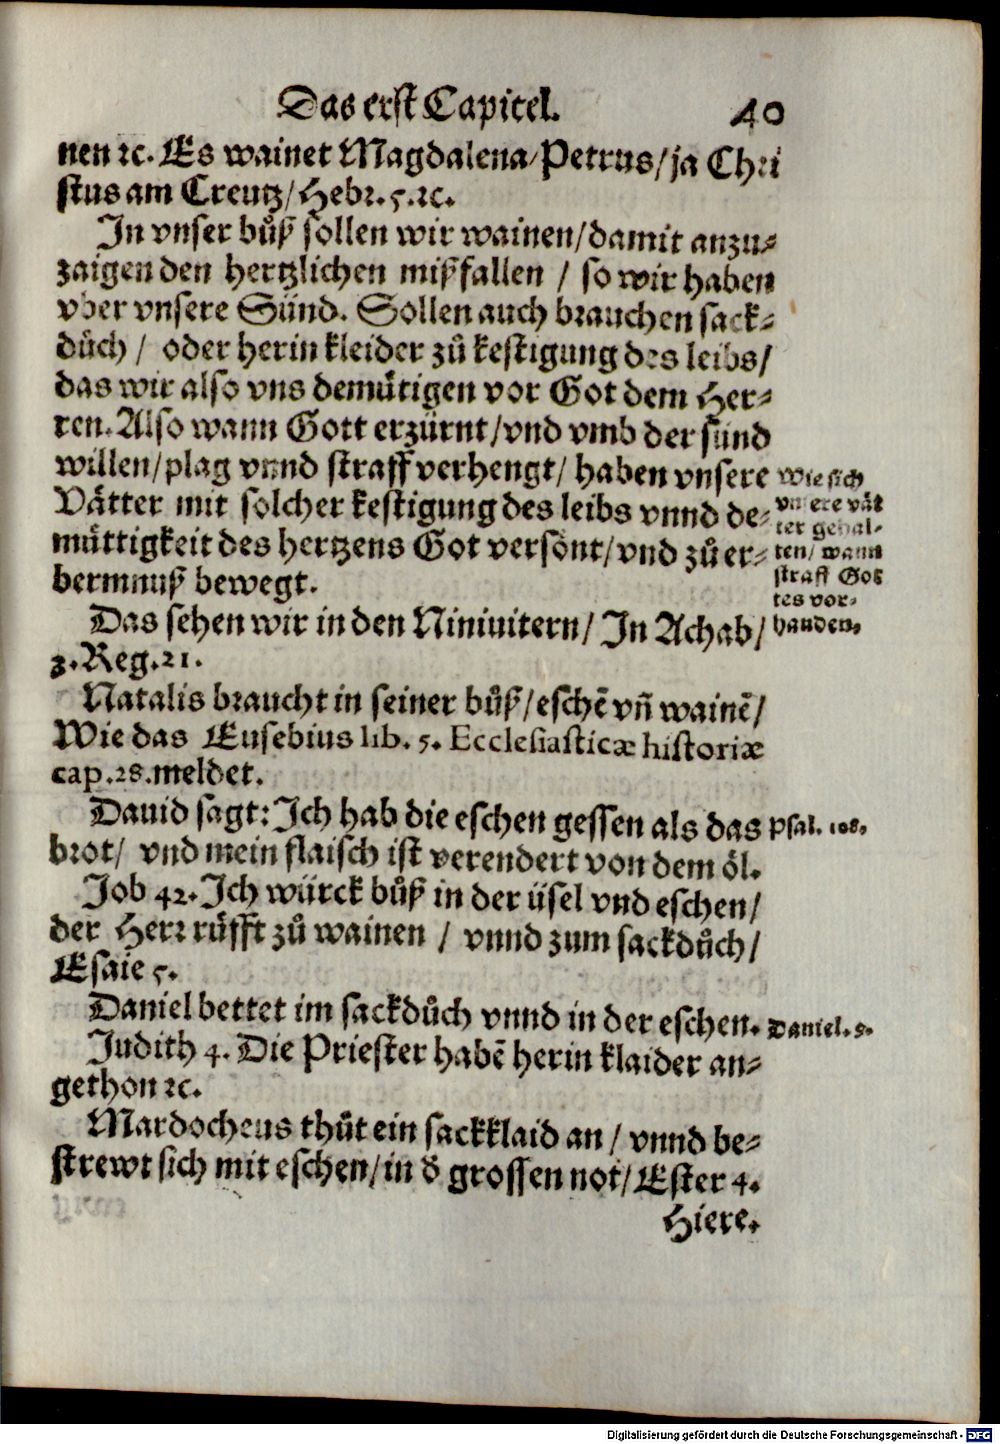 Das erst Capitel. 40
nen ꝛc. Es wainet Magdalena/Petrus/ja Chri
stus am Creutz/Hebꝛ. 5.ꝛc.
In vnser bůß sollen wir wainen/damit anzu⸗
zaigen den hertzlichen mißfallen / so wir haben
vber vnsere Sünd. Sollen auch bꝛauchen sack⸗
důch / oder herin kleider zů kestigung des leibs/
das wir also vns demütigen vor Got dem Her⸗
ren. Also wann Gott erzürnt/vnd vmb der sünd
willen/plag vnnd straff verhengt/ haben vnsere
Vätter mit solcher kestigung des leibs vnnd de⸗
müttigkeit des hertzens Got versönt/vnd zů er⸗
bermnuß bewegt.
Wie sich
vnsere vät
ter gehal⸗
ten/ wann
straff Got
tes vor⸗
handen.
Das sehen wir in den Niniuitern/ In Achab/
3. Reg. 21.
Natalis bꝛaucht in seiner bůß/eschē vñ wainē/
Wie das Eusebius lib. 5. Ecclesiasticæ historiæ
cap. 28. meldet.
Dauid sagt: Ich hab die eschen gessen als das
bꝛot/ vnd mein flaisch ist verendert von dem öl.
Psal. 108.
Job 42. Ich würck bůß in der üsel vnd eschen/
der Herꝛ rüfft zů wainen / vnnd zum sackdůch/
Esaie 5.
Daniel bettet im sackdůch vnnd in der eschen.
Daniel. 9.
Judith 4. Die Priester habē herin klaider an⸗
gethon ꝛc.
Mardocheus thůt ein sackklaid an / vnnd be⸗
strewt sich mit eschen/in d̕ grossen not/Ester 4.
Hiere.
Digitalisierung gefördert durch die Deutsche Forschungsgemeinschaft - DFG